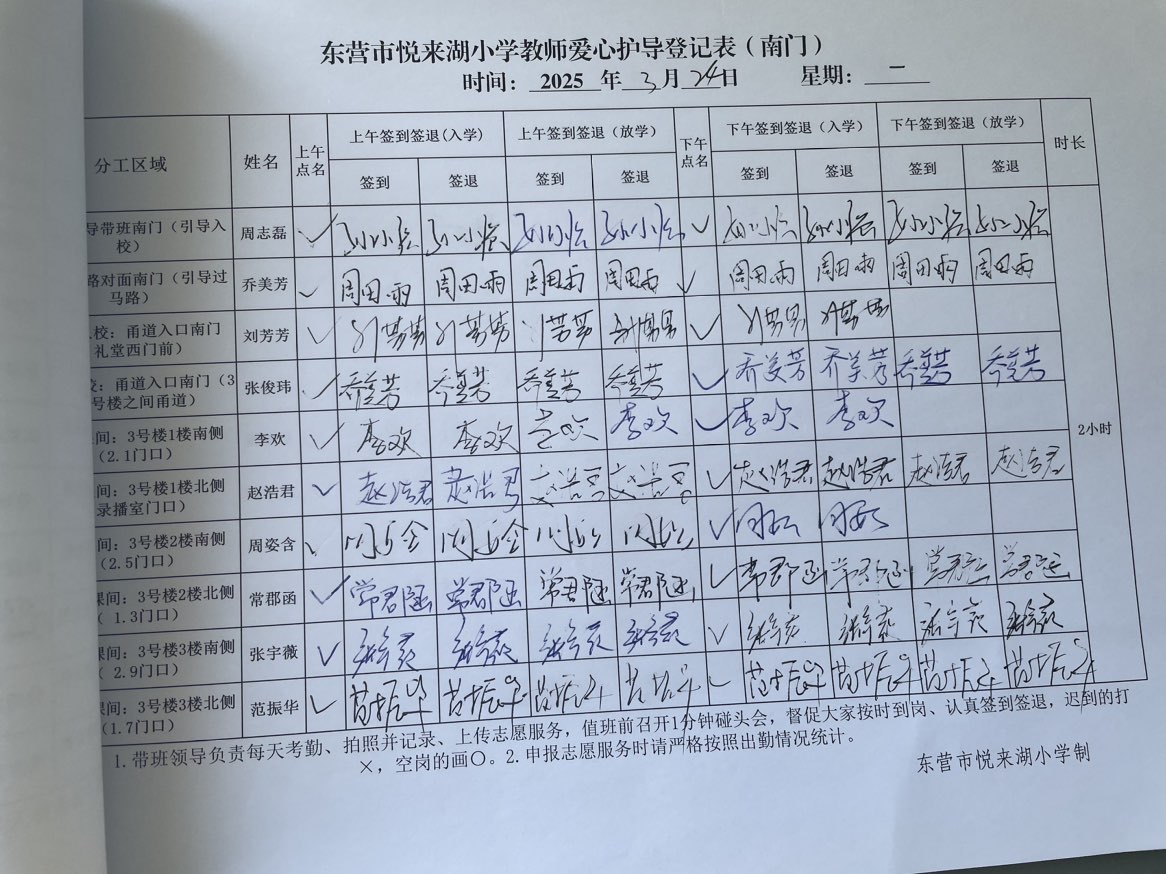 东营市悦来湖小学教师爱心护导登记表（南门）
时间：2025 年 3 月 24 日 星期：一
分工区域 姓名 上午点名 上午签到签退(入学) 上午签到签退（放学） 下午点名 下午签到签退（入学） 下午签到签退（放学） 时长
签到 签退 签到 签退 签到 签退 签到 签退
导带班南门（引导入校） 周志磊 ✓ ✓
路对面南门（引导过马路） 乔美芳 ✓ 周田雨 周田雨 周田雨 周田雨 ✓ 周田雨 周田雨 周田雨 周田雨
校：甬道入口南门礼堂西门前） 刘芳芳 ✓ ✓
：甬道入口南门（3号楼之间甬道） 张俊玮 ✓ 乔美芳 乔美芳 乔美芳 乔美芳 ✓ 乔美芳 乔美芳 乔美芳 乔美芳
间：3号楼1楼南侧（2.1门口） 李欢 ✓ 李欢 李欢 李欢 李欢 ✓ 李欢 李欢
间：3号楼1楼北侧录播室门口） 赵浩君 ✓ 赵浩君 赵浩君 赵浩君 赵浩君 ✓ 赵浩君 赵浩君 赵浩君 赵浩君
间：3号楼2楼南侧（2.5门口） 周姿含 ✓ ✓
课间：3号楼2楼北侧（ 1.3门口） 常郡函 ✓ 常郡函 常郡函 常郡函 常郡函 ✓ 常郡函 常郡函 常郡函 常郡函
课间：3号楼3楼南侧（ 2.9门口） 张宇薇 ✓ 张宇薇 张宇薇 张宇薇 张宇薇 ✓ 张宇薇 张宇薇 张宇薇 张宇薇
课间：3号楼3楼北侧（1.7门口） 范振华 ✓ 范振华 范振华 范振华 范振华 ✓ 范振华 范振华 范振华 范振华
2小时
1.带班领导负责每天考勤、拍照并记录、上传志愿服务，值班前召开1分钟碰头会，督促大家按时到岗、认真签到签退，迟到的打
×，空岗的画〇。2.申报志愿服务时请严格按照出勤情况统计。
东营市悦来湖小学制